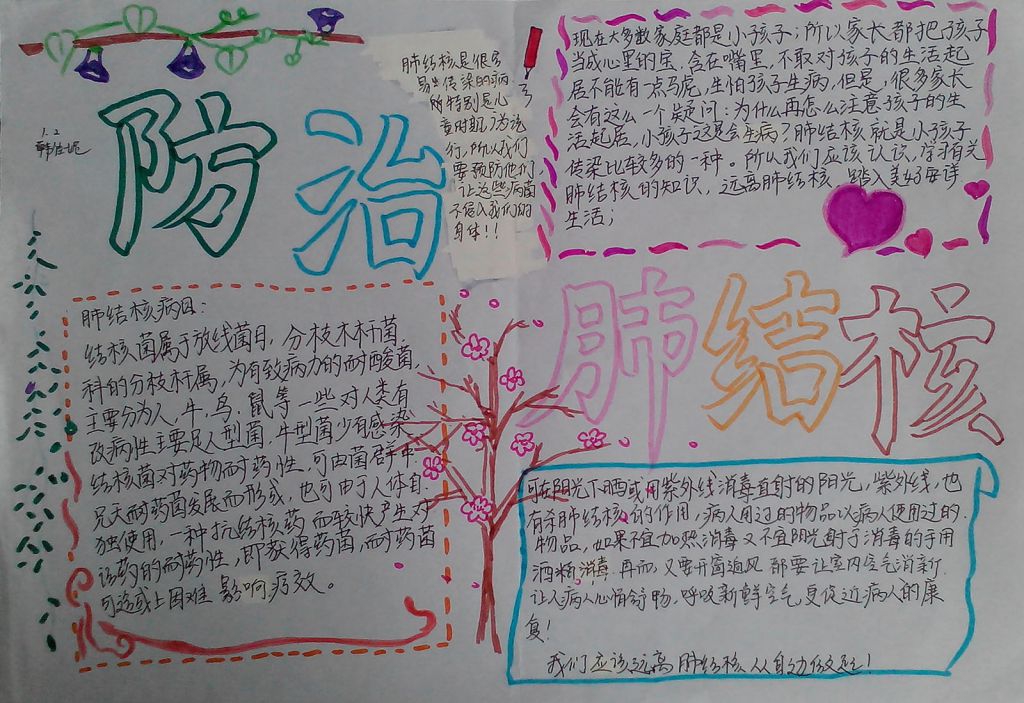 防治
1.2
肺结核是很容
易出传染的病,
所特别是儿
童时期,为流
行,所以我们
要预防他们
让这些病菌
不侵入我们的
身体!!
现在大多数家庭都是小孩子;所以家长都把孩子
当成心里的宝,含在嘴里,不敢对孩子的生活起
居不能有一点马虎,生怕孩子生病,但是,很多家长
会有这么一个疑问:为什么再怎么注意孩子的生
活起居,小孩子这是会生病?肺结核就是小孩子
传染比较多的一种。所以我们应该认识,学习有关
肺结核的知识,远离肺结核,踏入美好安详
生活;
肺结核
肺结核病因:
结核菌属于放线菌目,分枝木杆菌
科的分枝杆属,为有致病力的耐酸菌,
主要分为人,牛,鸟,鼠等一些对人类有
致病性主要是人型菌,牛型菌少有感染
结核菌对药物耐药性,可由菌群中
先天耐药菌发展而形成,也可由于人体自
独使用,一种抗结核药而较快产生对
该药的耐药性,即获得药菌,而耐药菌
可造成上困难影响疗效。
可在阳光下晒或用紫外线消毒直射的阳光,紫外线,也
有杀肺结核的作用,病人用过的物品以病人使用过的.
物品,如果不宜加热消毒又不宜阳光射于消毒的手用
酒精消毒.再而,又要开窗通风都要让室内空气消新.
让人病人心情舒畅,呼吸新鲜空气,更促近病人的康
复!
我们应该远离肺结核从自边做起!